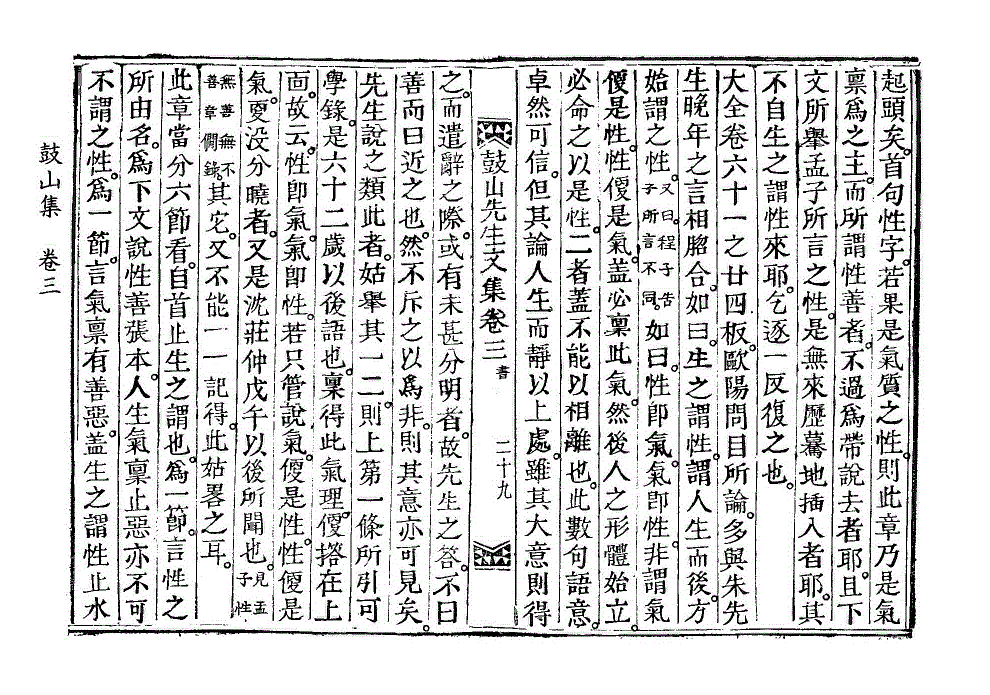 起頭矣。首句性字。若果是氣質之性。則此章乃是氣
稟爲之主。而所謂性善者。不過爲帶說去者耶。且下
文所舉孟子所言之性。是無來歷驀地插入者耶。其
不自生之謂性來耶。乞逐一反復之也。
大全卷六十一之廿四板。歐陽問目所論。多與朱先
生晚年之言相脗合。如曰。生之謂性。謂人生而後。方
始謂之性。又曰。程子告子所言不同。如曰。性卽氣。氣卽性。非謂氣
便是性。性便是氣。盖必稟此氣。然後人之形體始立。
必命之以是性。二者盖不能以相離也。此數句語意。
卓然可信。但其論人生而靜以上處。雖其大意則得
鼓山先生文集卷三 書 二十九
之。而遣辭之際。或有未甚分明者。故先生之答。不曰
善而曰近之也。然不斥之以爲非。則其意亦可見矣。
先生說之類此者。姑舉其一二。則上第一條所引可
學錄。是六十二歲以後語也。稟得此氣。理便搭在上
面。故云。性卽氣。氣卽性。若只管說氣。便是性。性便是
氣。更没分曉者。又是沈莊仲戊午以後所聞也。見孟子性
無善無不善章僩錄。其它。又不能一一記得。此姑畧之耳。
此章當分六節看。自首止生之謂也。爲一節。言性之
所由名。爲下文說性善張本。人生氣稟止惡亦不可
不謂之性。爲一節。言氣稟有善惡。盖生之謂性止水
鼓山集 卷三